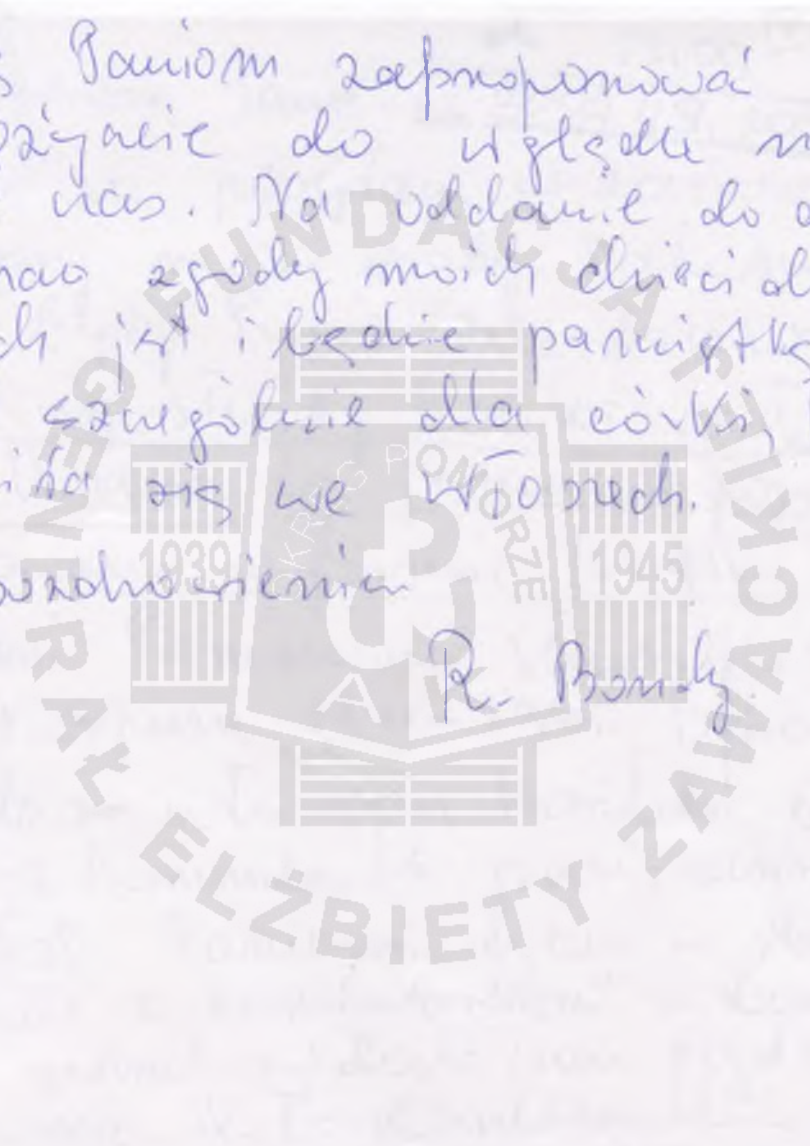 Paniom zaproponować
życzcie do wglądu
nas. Na oddanie do
zgody moich dzieci
jest i będzie pamiątką
szczególnie dla córki,
się we Włoszech.
pozdrowieniem
R. Bondy.
FUNDACJA
GENERAŁ ELŻBIETY ZAWACKIEJ
OKRĘG POMORZE
1939
1945
AK